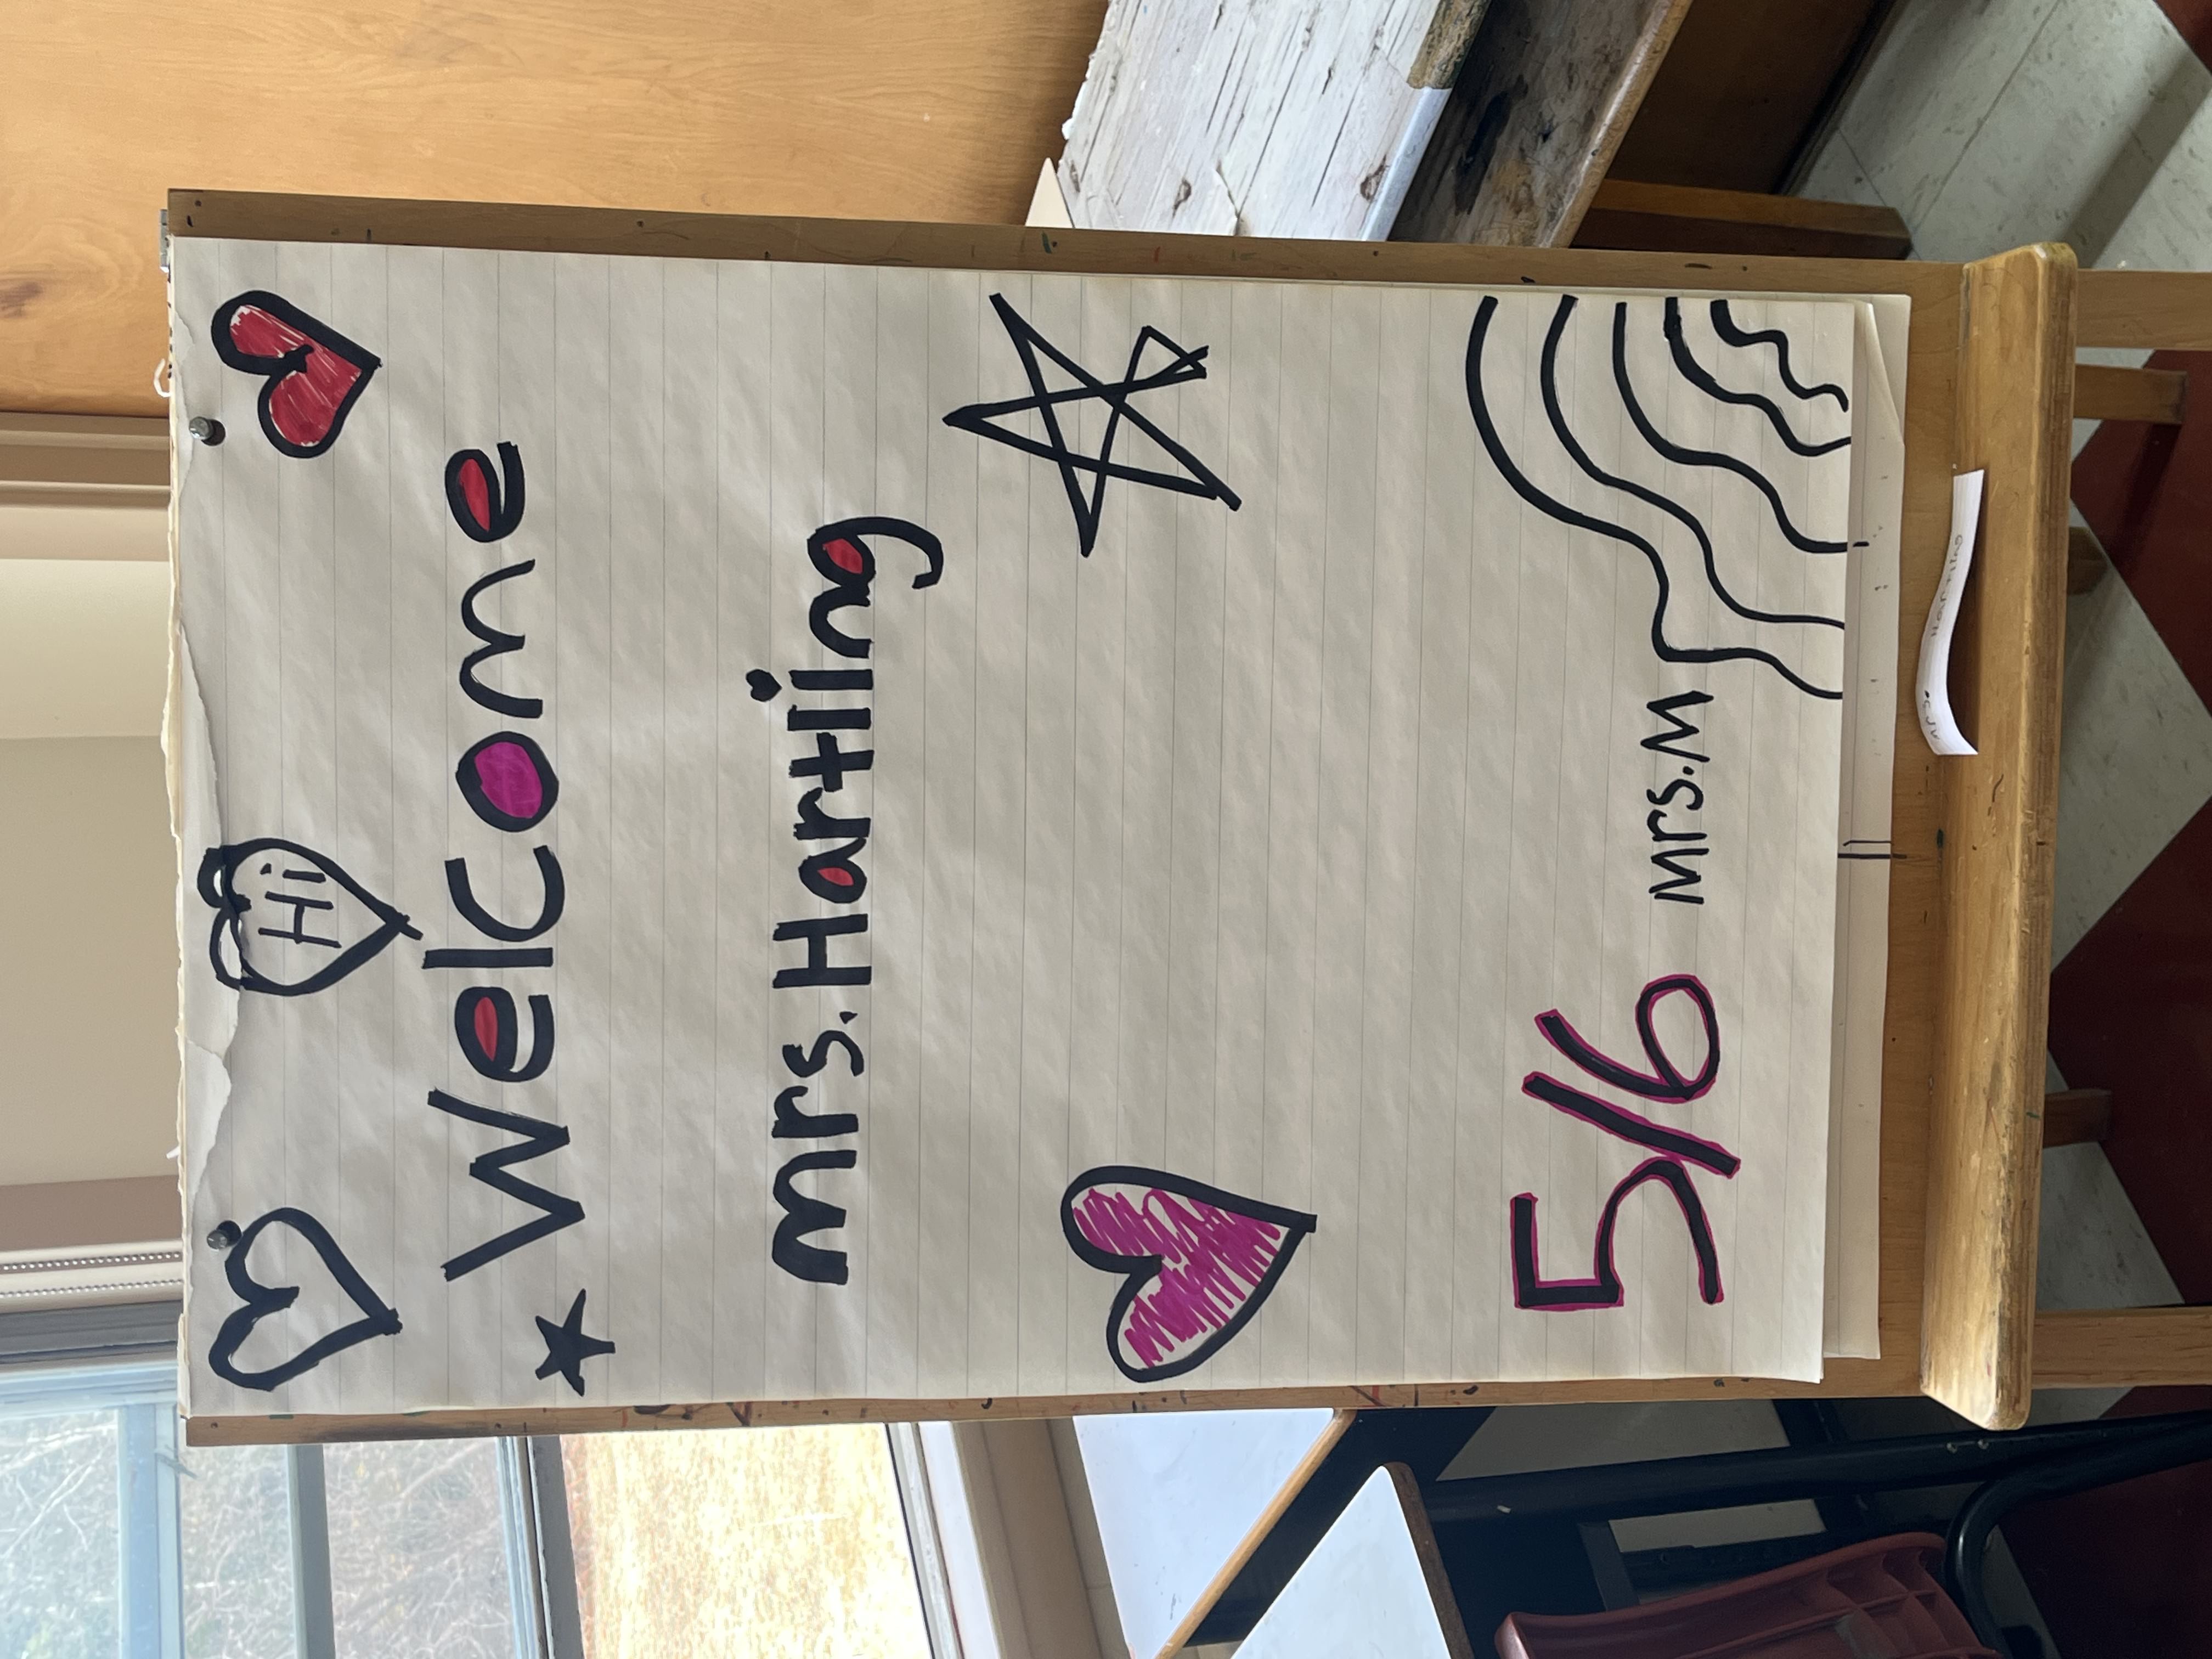 Hi
Welcome
mrs. Harting
5/6 mrs.M